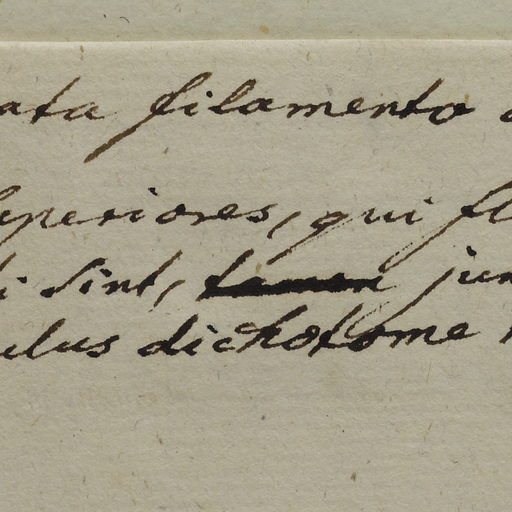 ata filamento
superiores, qui fl
i sint, tamen jun
ulus dichotome